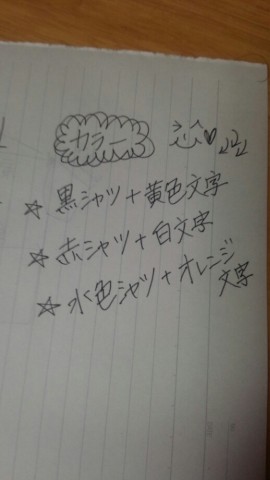 カラー
☆ 黒シャツ+黄色文字
☆ 赤シャツ+白文字
☆ 水色シャツ+オレンジ
文字